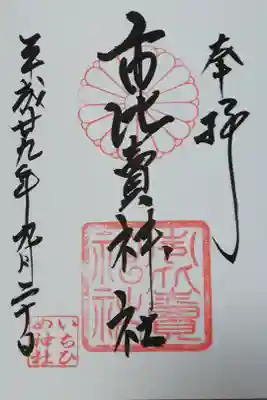 奉拝
市比賣神社
平成廿九年九月二十日
市比賣神社
いちひ
め神社